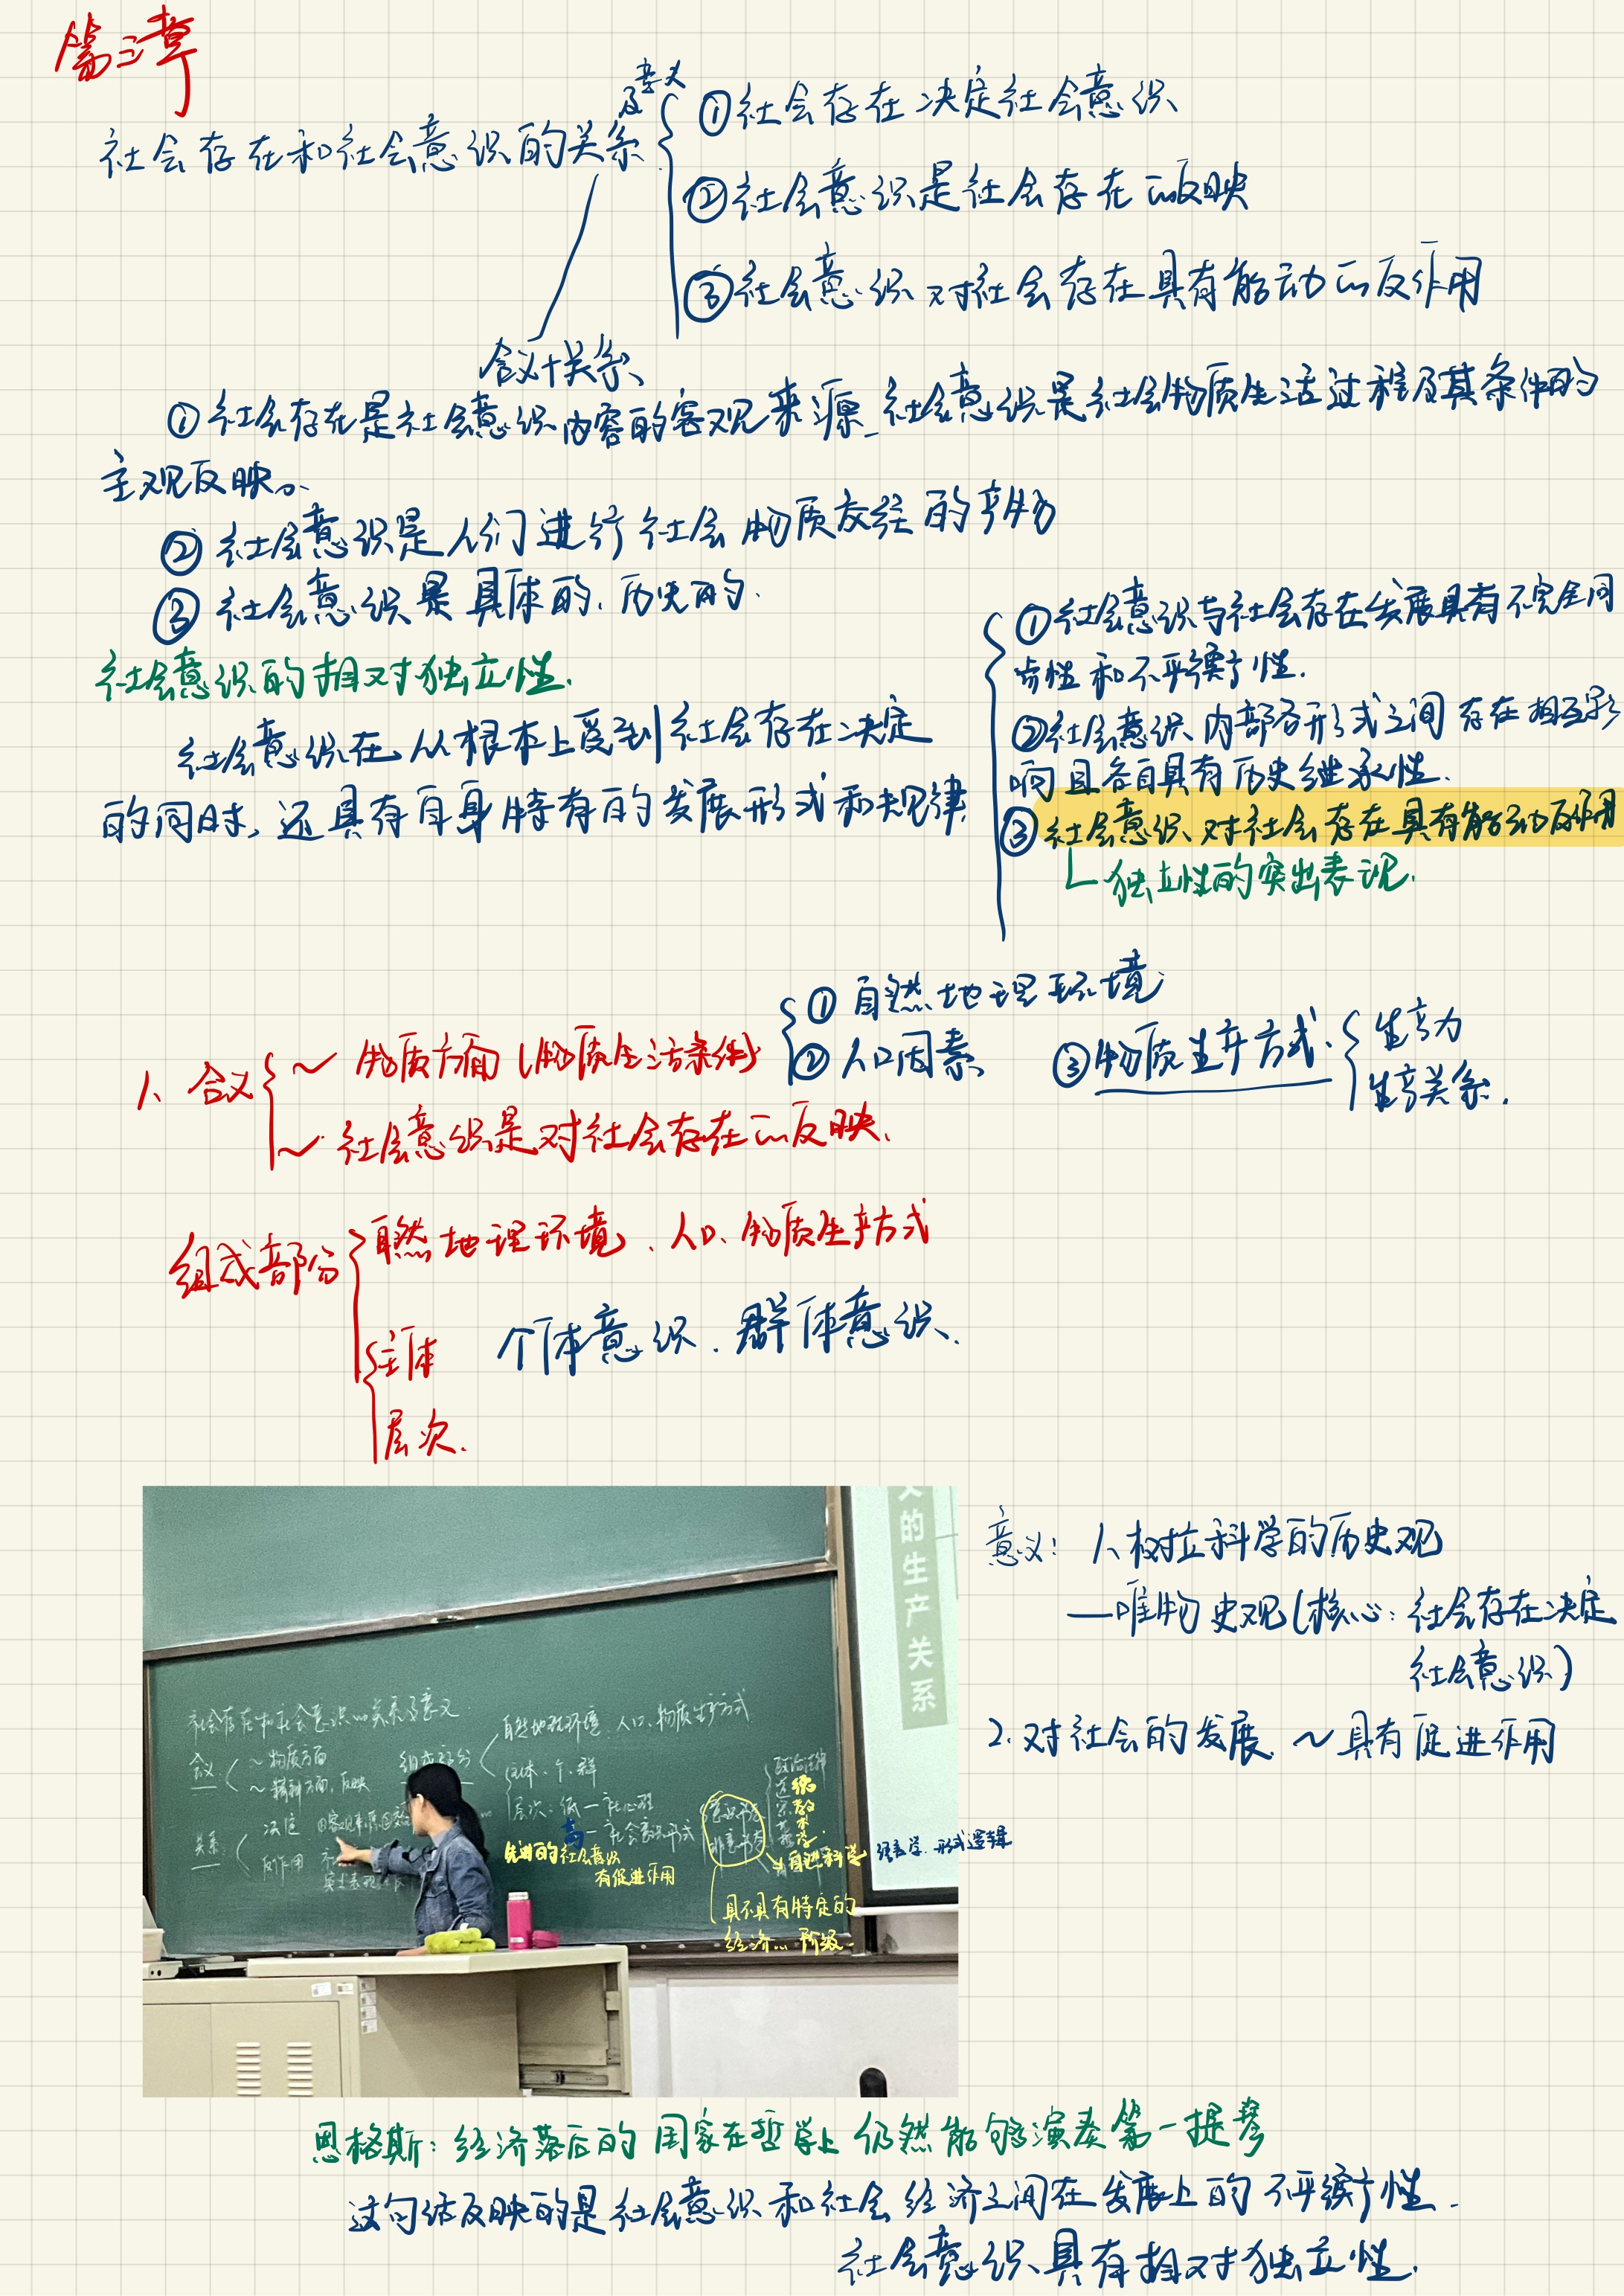 第三章
社会存在和社会意识的关系及意义
①社会存在决定社会意识
②社会意识是社会存在的反映
③社会意识对社会存在具有能动的反作用
含义+关系、
①社会存在是社会意识内容的客观来源 社会意识是社会物质生活过程及其条件的
主观反映。
②社会意识是人们进行社会物质交往的产物
③社会意识是具体的、历史的.
社会意识的相对独立性.
社会意识在从根本上受到社会存在决定
的同时,还具有自身特有的发展形式和规律.
①社会意识与社会存在发展具有不完全同
步性和不平衡性.
②社会意识内部各形式之间存在相互影
响且各自具有历史继承性.
③社会意识对社会存在具有能动反作用
独立性的突出表现.
1、含义
～物质方面(物质生活条件)
①自然地理环境
②人口因素
③物质生产方式.
生产力
生产关系.
～社会意识是对社会存在的反映、
组成部分
自然地理环境、人口、物质生产方式
主体 个体意识.群体意识、
层次.
的生产关系
社会存在和社会意识的关系及意义
含义
～物质方面
～精神方面,反映
组成部分
自然地理环境、人口、物质生产方式
主体、个、群
层次:低—社心理
高
—社会意识形式
关系
决定
反作用
先进的社会意识
有促进作用
自然科学
语言学.形式逻辑
具不具有特定的
经济…阶级
意义:1、树立科学的历史观
—唯物史观(核心:社会存在决定
社会意识)
2.对社会的发展～具有促进作用
恩格斯:经济落后的国家在哲学上仍然能够演奏第一提琴
这句话反映的是社会意识和社会经济之间在发展上的不平衡性.
社会意识具有相对独立性.